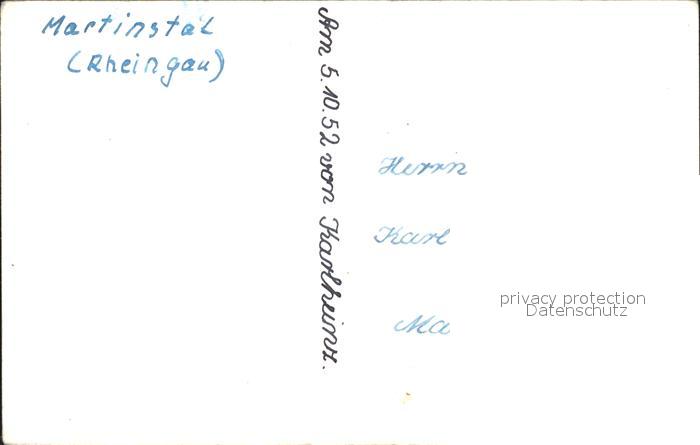 Martinstal
(Rheingau)
Am 5.10.52 von Karlheinz.
Herrn
Karl
Ma
privacy protection
Datenschutz